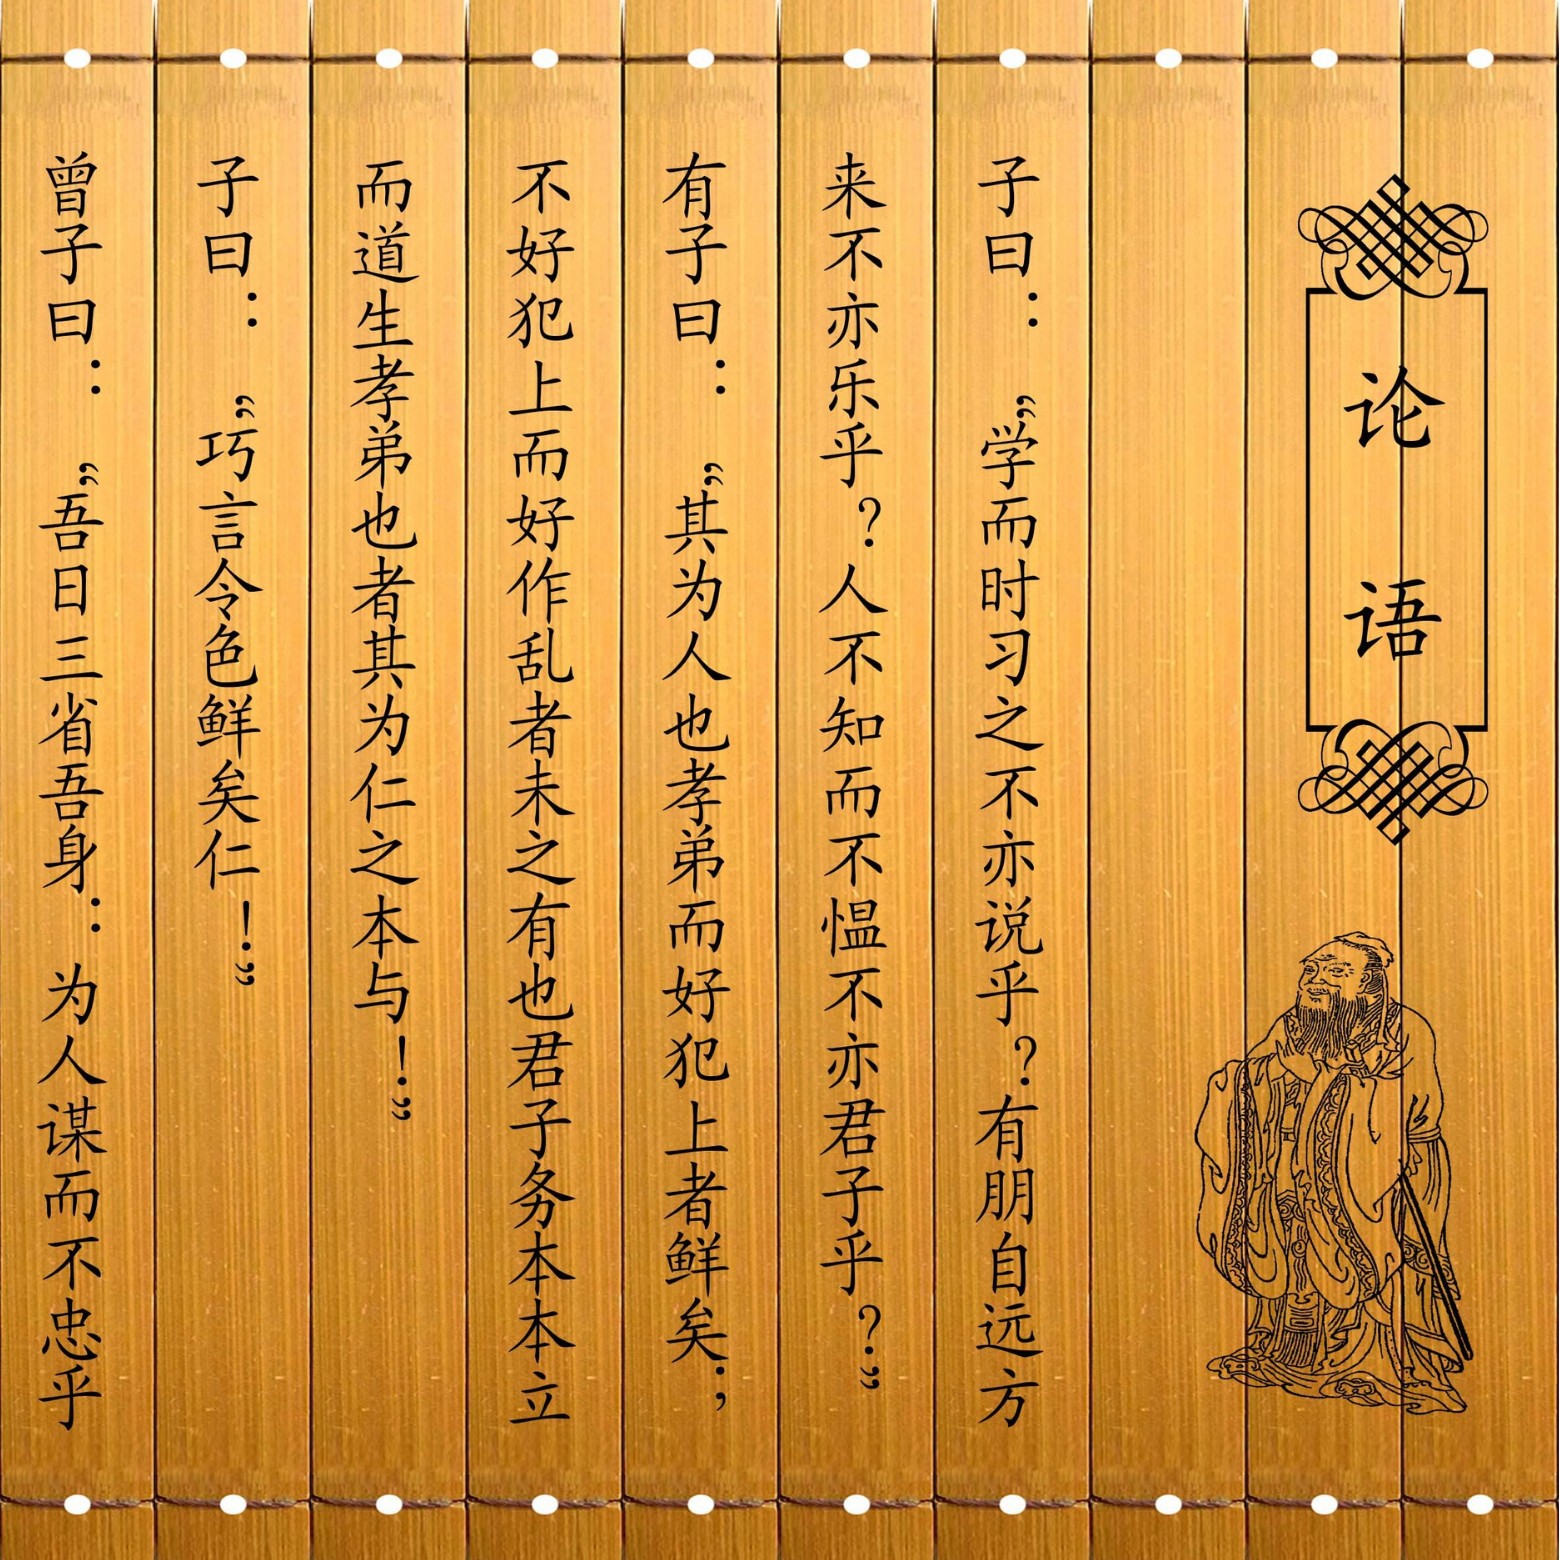 论语
子曰：“学而时习之不亦说乎？有朋自远方
来不亦乐乎？人不知而不愠不亦君子乎？”
有子曰：“其为人也孝弟而好犯上者鲜矣；
不好犯上而好作乱者未之有也君子务本本立
而道生孝弟也者其为仁之本与！”
子曰：“巧言令色鲜矣仁！”
曾子曰：“吾日三省吾身：为人谋而不忠乎